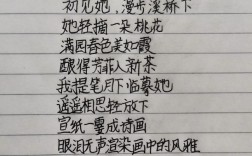 初见她，漫步溪桥下
她轻摘一朵桃花
满园春色美如霞
酿得芳菲入新茶
我提笔月下临摹她
遥遥相思轻放下
宣纸一霎成诗画
眼泪无声渲染画中的风雅